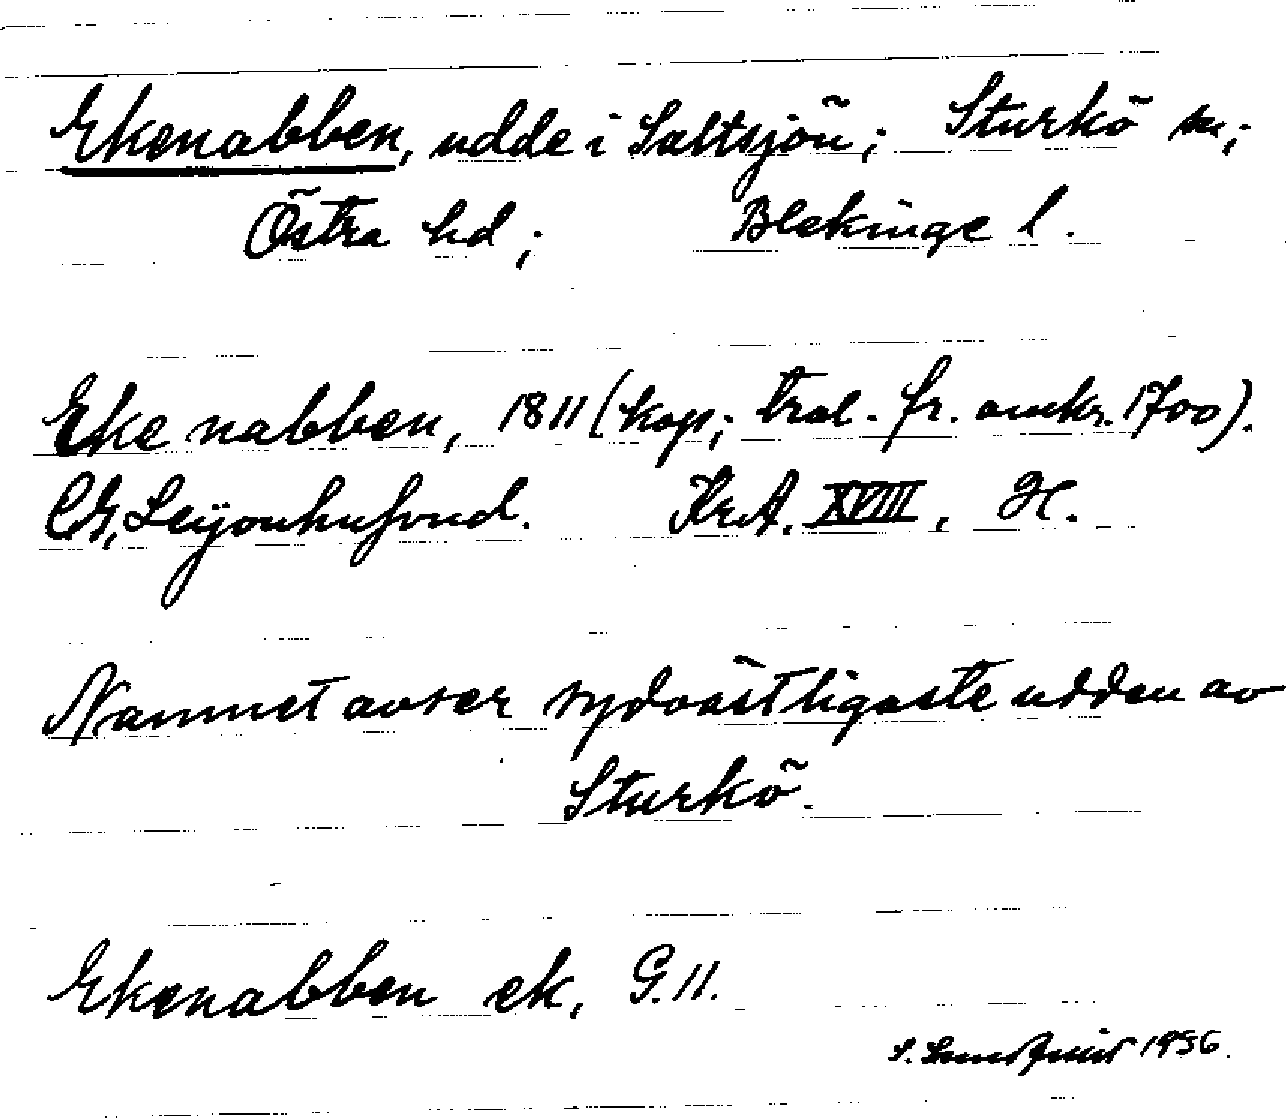 Ekenabben, udde i Saltsjön; Sturkö sn;
Östra hd; Blekinge l.
Eke nabben, 1811 (kop; trol. fr. omkr. 1700).
Leijonhufvud. Kr.A. XVIII, H.
Namnet avser sydvästligaste udden av
Sturkö.
Ekenabben ek, G.11.
1956.